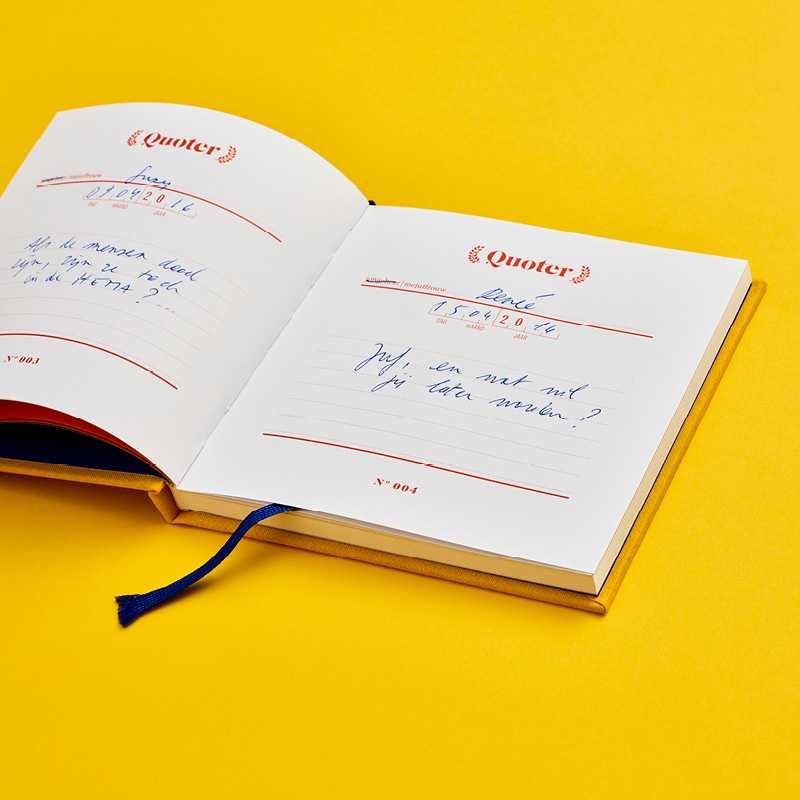 Quoter
Suzy
/ mejuffrouw
09 04 20 16
DAG MAAND JAAR
Als de mensen dood
zijn, zijn ze toch
in de HEMA ?...
N° 003
Quoter
Renée
/ mejuffrouw
15 04 20 16
DAG MAAND JAAR
Juf, en wat wil
jij later worden ?
N° 004